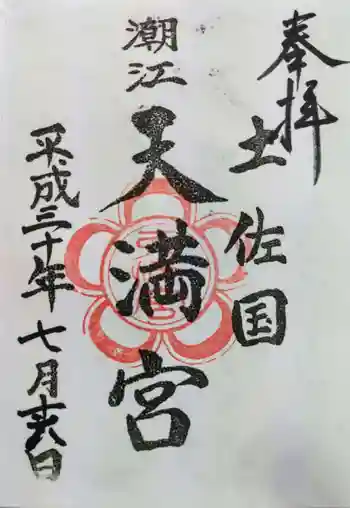 奉拝
土佐国
潮江
天満宮
平成三十年七月廿八日